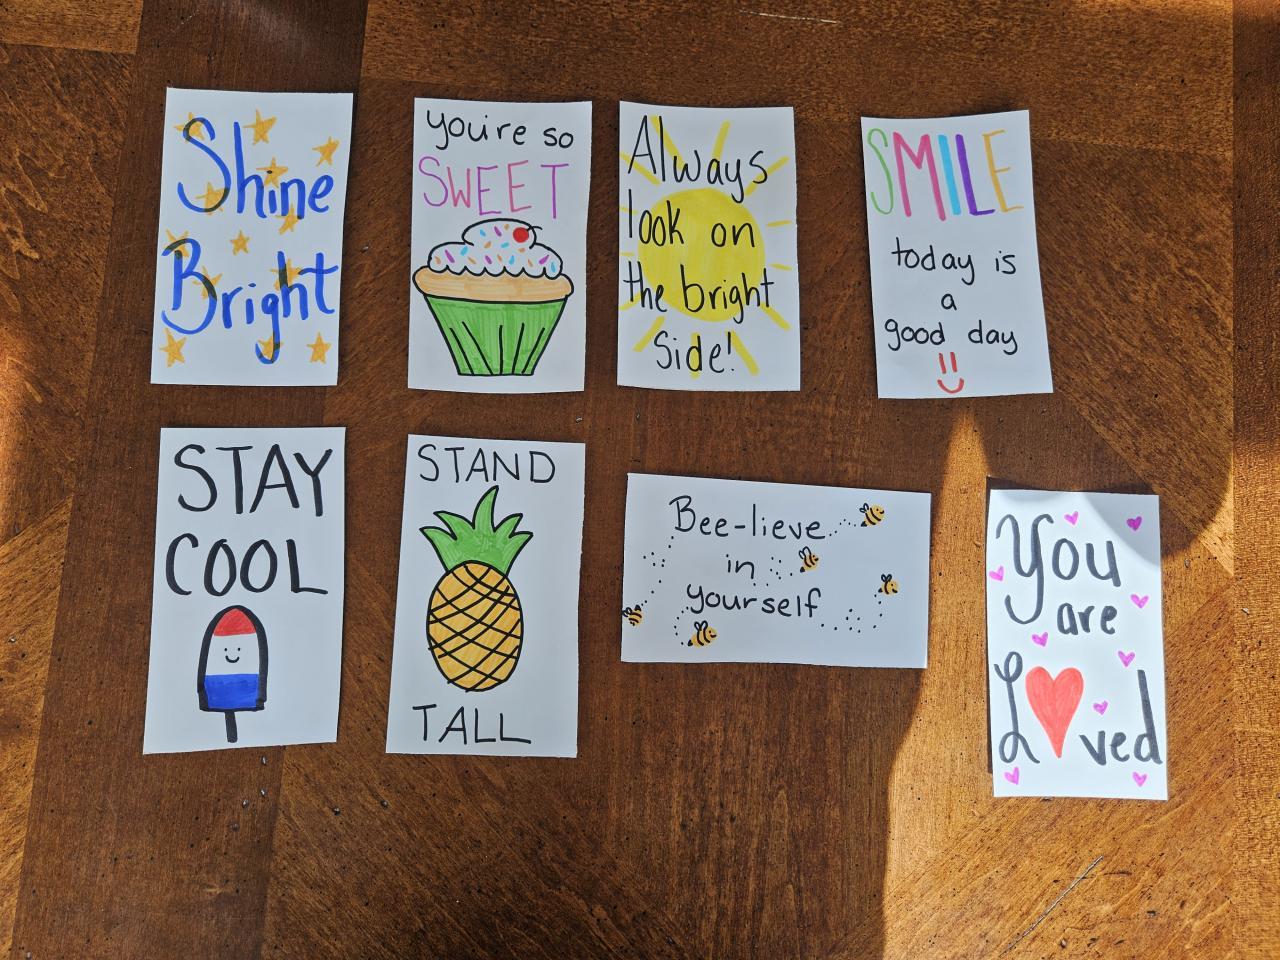 Shine
Bright
you're so
SWEET
Always
look on
the bright
side!
SMILE
today is
a
good day
STAY
COOL
STAND
TALL
Bee-lieve
in
yourself
You
are
L❤ved